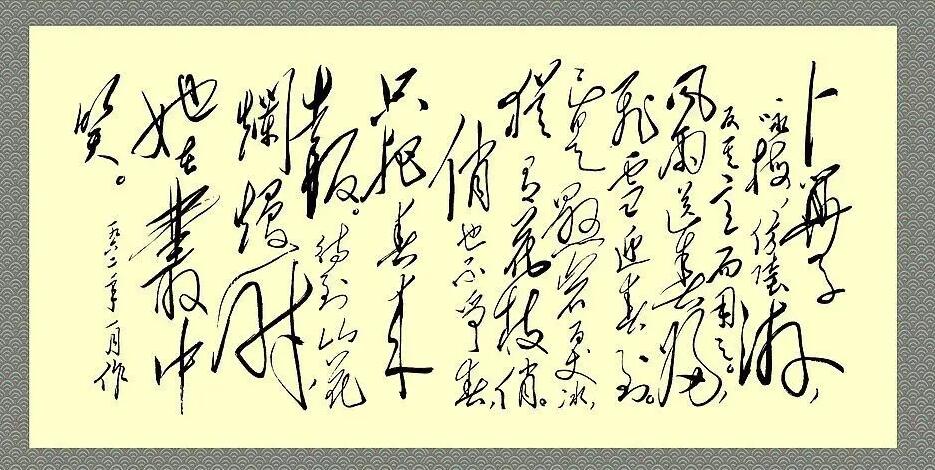 卜算子
咏梅,仿陸游,
反其意而用之。
风雨送春归,
飛雪迎春到。
已是懸岩百丈冰,
犹有花枝俏。
俏也不爭春,
只把春来
報。待到山花
爛熳时,
她在叢中
笑。
一九六二年一月作